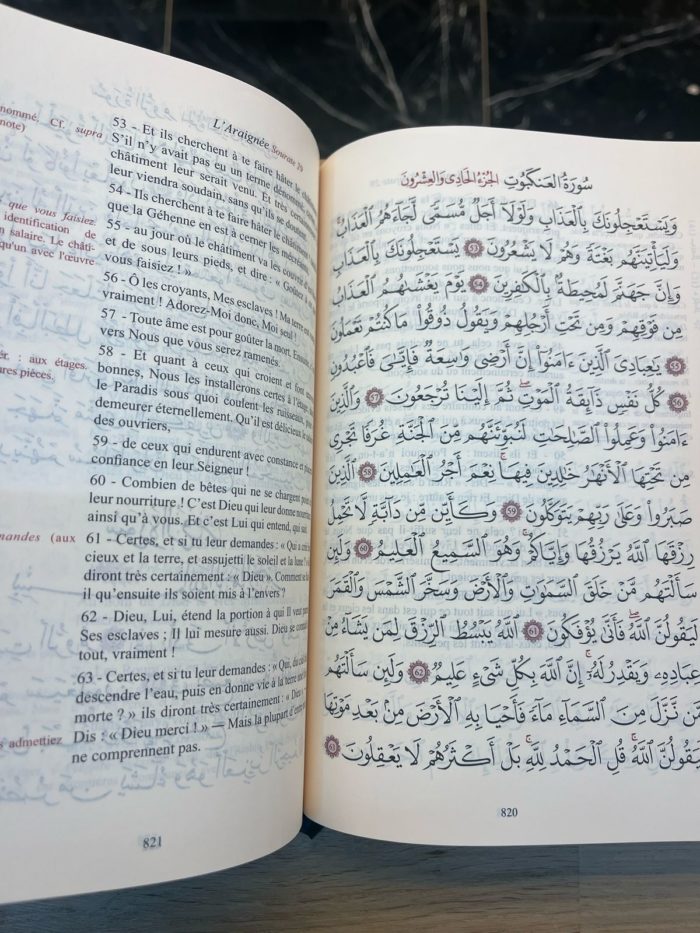 سُورَةُ العَنكَبُوتِ الجُزءُ الحَادِى وَالعِشْرُونَ
وَيَسْتَعْجِلُونَكَ بِٱلْعَذَابِ وَلَوْلَآ أَجَلٌ مُّسَمًّى لَّجَآءَهُمُ ٱلْعَذَابُ
وَلَيَأْتِيَنَّهُم بَغْتَةً وَهُمْ لَا يَشْعُرُونَ 53 يَسْتَعْجِلُونَكَ بِٱلْعَذَابِ
وَإِنَّ جَهَنَّمَ لَمُحِيطَةٌۢ بِٱلْكَٰفِرِينَ 54 يَوْمَ يَغْشَىٰهُمُ ٱلْعَذَابُ
مِن فَوْقِهِمْ وَمِن تَحْتِ أَرْجُلِهِمْ وَيَقُولُ ذُوقُوا۟ مَا كُنتُمْ تَعْمَلُونَ
55 يَٰعِبَادِىَ ٱلَّذِينَ ءَامَنُوٓا۟ إِنَّ أَرْضِى وَٰسِعَةٌ فَإِيَّٰىَ فَٱعْبُدُونِ
56 كُلُّ نَفْسٍ ذَآئِقَةُ ٱلْمَوْتِ ۖ ثُمَّ إِلَيْنَا تُرْجَعُونَ 57 وَٱلَّذِينَ
ءَامَنُوا۟ وَعَمِلُوا۟ ٱلصَّٰلِحَٰتِ لَنُبَوِّئَنَّهُم مِّنَ ٱلْجَنَّةِ غُرَفًا تَجْرِى
مِن تَحْتِهَا ٱلْأَنْهَٰرُ خَٰلِدِينَ فِيهَا ۚ نِعْمَ أَجْرُ ٱلْعَٰمِلِينَ 58 ٱلَّذِينَ
صَبَرُوا۟ وَعَلَىٰ رَبِّهِمْ يَتَوَكَّلُونَ 59 وَكَأَيِّن مِّن دَآبَّةٍ لَّا تَحْمِلُ
رِزْقَهَا ٱللَّهُ يَرْزُقُهَا وَإِيَّاكُمْ ۚ وَهُوَ ٱلسَّمِيعُ ٱلْعَلِيمُ 60 وَلَئِن
سَأَلْتَهُم مَّنْ خَلَقَ ٱلسَّمَٰوَٰتِ وَٱلْأَرْضَ وَسَخَّرَ ٱلشَّمْسَ وَٱلْقَمَرَ
لَيَقُولُنَّ ٱللَّهُ ۖ فَأَنَّىٰ يُؤْفَكُونَ 61 ٱللَّهُ يَبْسُطُ ٱلرِّزْقَ لِمَن يَشَآءُ مِنْ
عِبَادِهِۦ وَيَقْدِرُ لَهُۥٓ ۚ إِنَّ ٱللَّهَ بِكُلِّ شَىْءٍ عَلِيمٌ 62 وَلَئِن سَأَلْتَهُم
مَّن نَّزَّلَ مِنَ ٱلسَّمَآءِ مَآءً فَأَحْيَا بِهِ ٱلْأَرْضَ مِنۢ بَعْدِ مَوْتِهَا
لَيَقُولُنَّ ٱللَّهُ ۚ قُلِ ٱلْحَمْدُ لِلَّهِ ۚ بَلْ أَكْثَرُهُمْ لَا يَعْقِلُونَ 63
820
L'Araignée Sourate 29
53 - Et ils cherchent à te faire hâter le
S'il n'y avait pas eu un terme dénommé,
châtiment leur serait venu. Et très
leur viendra soudain, sans qu'ils se
54 - Ils cherchent à te faire hâter le châtiment
que la Géhenne est à cerner les
55 - au jour où le châtiment va les couvrir
et de sous leurs pieds, et dire : « Goûtez
vous faisiez ! »
56 - Ô les croyants, Mes esclaves ! Ma terre est
vraiment ! Adorez-Moi donc, Moi seul !
57 - Toute âme est pour goûter la mort. Ensuite
vers Nous que vous serez ramenés.
58 - Et quant à ceux qui croient et font
bonnes, Nous les installerons certes à l'étage
le Paradis sous quoi coulent les ruisseaux,
demeurer éternellement. Qu'il est délicieux
des ouvriers,
59 - de ceux qui endurent avec constance et
confiance en leur Seigneur !
60 - Combien de bêtes qui ne se chargent
leur nourriture ! C'est Dieu qui leur donne
ainsi qu'à vous. Et c'est Lui qui entend, qui
61 - Certes, et si tu leur demandes : « Qui a
cieux et la terre, et assujetti le soleil et la
diront très certainement : « Dieu ». Comment se
il qu'ensuite ils soient mis à l'envers ?
62 - Dieu, Lui, étend la portion à qui Il veut
Ses esclaves ; Il lui mesure aussi. Dieu se
tout, vraiment !
63 - Certes, et si tu leur demandes : « Qui, du
descendre l'eau, puis en donne vie à la terre
morte ? » ils diront très certainement : « Dieu »
Dis : « Dieu merci ! » — Mais la plupart
ne comprennent pas.
nommé. Cf. supra
note)
que vous faisiez
identification de
salaire. Le châti-
qu'un avec l'œuvre
: aux étages.
pièces.
(aux
admettiez
821